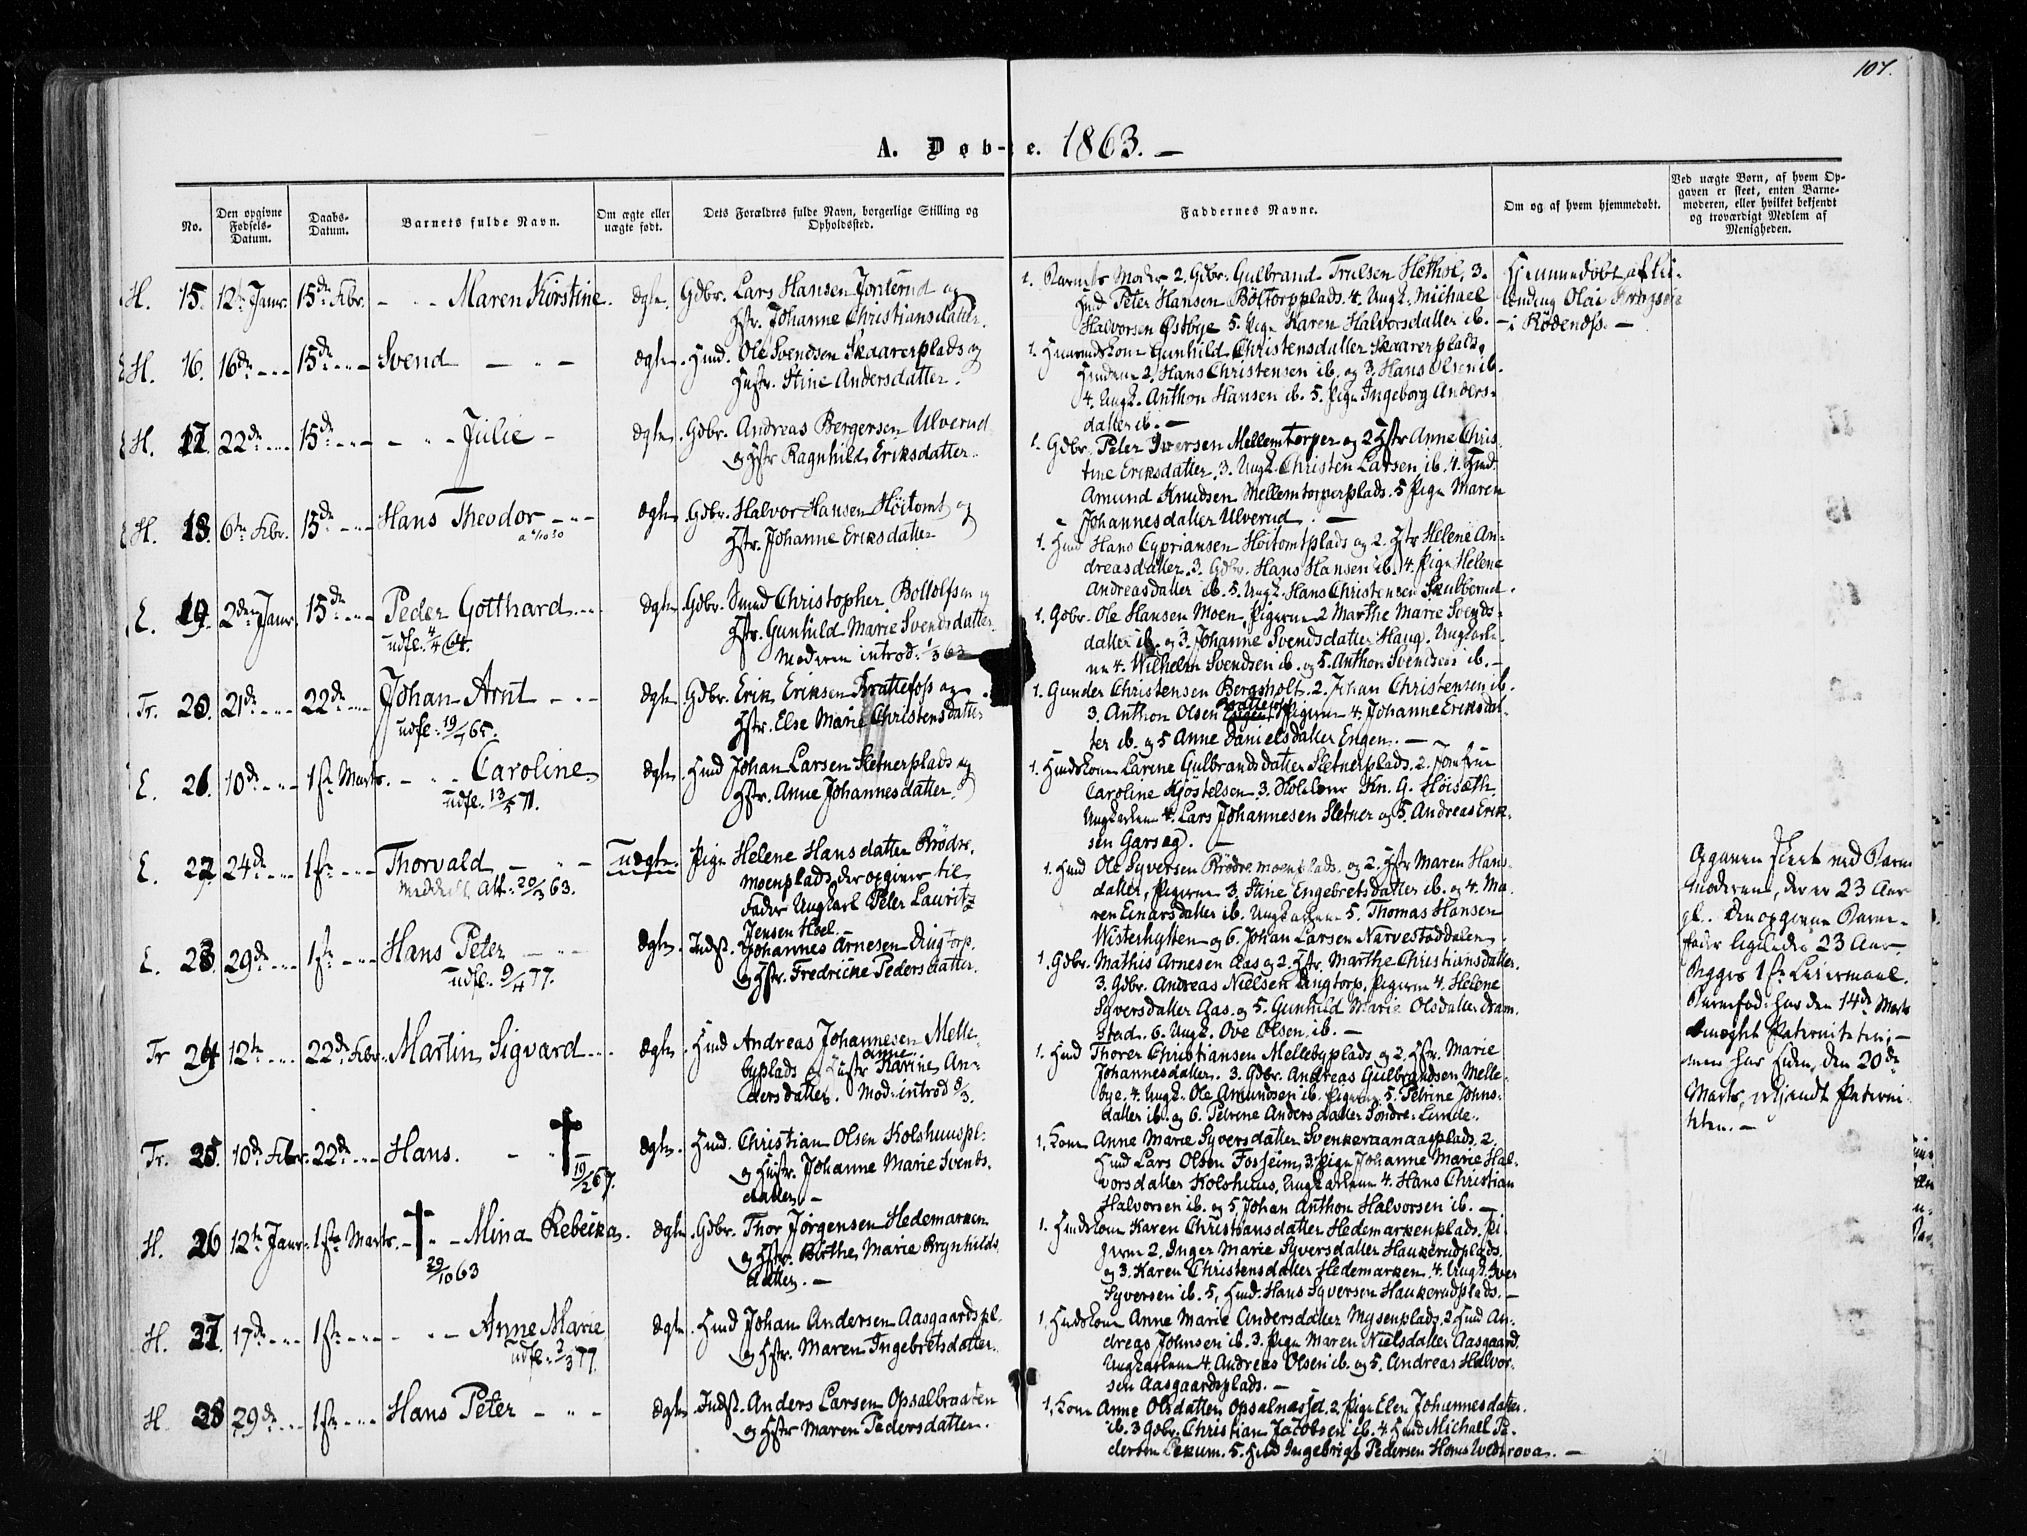 107.
A. Døbte. 1863. —
No.
Den opgivne Fødsels-Datum.
Daabs-Datum.
Barnets fulde Navn.
Om ægte eller uægte født.
Dets Forældres fulde Navn, borgerlige Stilling og Opholdssted.
Faddernes Navne.
Om og af hvem hjemmedøbt.
Ved uægte Børn, af hvem Op-
gaven er skeet, enten Barne-
moderen, eller hvilket bekjendt
og troværdigt Medlem af
Menigheden.
H. 15. 12te Janr. 15de Febr. – „ – Maren Kirstine. ægte. Gdbr. Lars Hansen og
Hstr. Johanne Christiansdatter.
1. Barnets Moder 2. Gdbr. Gulbrand Trulsen Hethol, 3.
Hmd Peter Hansen Böltorpplads. 4. Ungk. Michael
Halvorsen Østbye 5. Pige Karen Halvorsdatter ib. –
Hjemmedöbt af
Olai
i Rödenæs. –
H. 16. 16de – „ – 15de – „ – Svend – „ – ægte. Hmd. Ole Svendsen Skaarerplads og
Hustr. Stine Andersdatter.
1. Gunhild Christensdatter Skaarerplads,
2. Hans Christensen ib. og 3. Hans Olsen ib.
4. Ungk. Anthon Hansen ib. 5. Pige Ingeborg Anders-
datter ib. –
H. 17. 22de – „ – 15de – „ – – „ – Julie – ægte. Gdbr. Andreas Bergersen Ulverud
og Hstr Ragnhild Eriksdatter.
1. Gdbr. Peter Iversen Mellemtorper og 2 Hstr Anne Chris-
tine Eriksdatter. 3. Ungk. Christen Larsen ib. 4. Hmd.
Amund Knudsen Mellemtorperplads. 5 Pige Maren
Johannesdatter Ulverud. –
H. 18. 6te Febr. 15de – „ – Hans Theodor – „ – ægte. Gdbr. Halvor Hansen Höitomt og
Hstr. Johanne Eriksdatter
1. Hmd Hans Cypriansen Höitomtplads og 2. Hstr Helene An-
dreasdatter. 3. Gdbr. Hans Hansen ib. 4. Pige Helene
Andreasdatter ib. 5. Ungk. Hans Christensen Skulberud.
E. 19. 2den Janr. 15de – „ – Peder Gotthard – ægte. Gdbr. Smed Christopher Bottolfsen og
udfl. 4/4 64. Hstr. Gunhild Marie Svendsdatter.
Moderen introd. 1/3 63
1. Gdbr. Ole Hansen Moen, Pigerne 2 Marthe Marie Svends-
datter ib. og 3. Johanne Svendsdatter Haug. Ungkarle-
ne 4. Wilhelm Svendsen ib. og 5. Anthon Svendsen ib. –
Tr. 20. 21de – „ – 22de – „ – Johan Arnt – „ – ægte. Gdbr. Erik Eriksen Brattefoss og
udfl. 19/4 65. Hstr. Else Marie Christensdatter
1. Gunder Christensen Bergsholt. 2. Johan Christensen ib.
3. Anthon Olsen Brattefoss, Pigerne 4. Johanne Eriksdat-
ter ib. og 5 Anne Danielsdatter Engen. –
E. 21. 10de – „ – 1ste Marts. – „ – Caroline. ægte. Hmd Johan Larsen Sletnerplads og
udfl. 13/5 71. Hstr. Anne Johannesdatter.
1. Hmdskone Larine Gulbrandsdatter Sletnerplads. 2. Jomfrue
Caroline Kjöstelsen, 3. Kn. G. Höiseth.
Ungkarlene 4. Lars Johannesen Sletner og 5. Andreas Erik-
sen Garseg. –
E. 22. 24de – „ – 1ste – „ – Thorvald – „ – uægte. Pige Helene Hansdatter Rödre.
Meddelt Att. 20/3 63. moenplads, der opgiver til
Fader Ungkarl Peter Lauritz
Jensen Hoel. –
1. Hmd Ole Syversen Rödremoenplads. og 2. Hstr Maren Hans-
datter, Pigerne 3. Stine Engebretsdatter ib. og 4. Ma-
ren Einarsdatter ib. Ungkarlene 5. Thomas Hansen
Wisterhytten og 6. Johan Larsen Narvestaddalen.
Opgaven skeet ved Barne-
moderen, der er 23 Aar
gl. Den opgivne Barne-
fader ligeledes 23 Aar.
Begges 1ste Leiermaal.
Barnefad. har den 14de Marts
benægtet Paterniteten, –
men har siden, den 20de
Marts, vedkjendt Paterni-
teten. –
E. 23. 29de – „ – 1ste – „ – Hans Peter – „ – ægte. Indst. Johannes Arnesen Dingtorp.
udfl. 9/4 77. og Hstr. Fredricke Pedersdatter.
1. Gdbr. Mathis Arnesen Aas og 2. Hstr. Marthe Christiansdatter.
3. Gdbr. Andreas Nielsen Dingtorp, Pigerne 4. Helene
Syversdatter Aas. og 5. Gunhild Marie Olsdatter Ram-
stad. 6. Ungk. Ove Olsen ib. –
Tr 24. 12te – „ – 22de Febr. Martin Sigvard – „ ægte. Hmd Andreas Johannesen Melle-
byplads og Hustr Anne Karine An-
dersdatter. Mod. introd 8/3.
1. Hmd Thorer Christiansen Mellebyplads og 2. Hstr. Marie
Johannesdatter. 3. Gdbr. Andreas Gulbrandsen Melle-
bye. 4. Ungk. Ole Amundsen ib. Pigerne 5. Petrine Johns-
datter ib. og 6. Petrine Andersdatter Söndre-Linde.
Tr. 25. 10de Febr. 22de – „ – Hans. – „ – † 19/2 67. ægte. Hmd. Christian Olsen Kolshuuspl.
og Hustr. Johanne Marie Svends-
datter. –
1. Kone Anne Marie Syversdatter Svenkeraanaasplads. 2.
Hmd Lars Olsen Fosheim, 3. Pige Johanne Marie Hal-
vorsdatter Kolshuus, Ungkarlene 4. Hans Christian
Halvorsen ib. og 5 Johan Anthon Halvorsen ib. –
H. 26 12te Janr. 1ste Marts. – † „ – Mina Rebecka. ægte. Gdbr. Thor Jørgensen Hedemarken
29/10 63 og Hstr. Birthe Marie Brynhilds-
datter. –
1. Hmdskone Karen Christiansdatter Hedemarkenplads. Pi-
gerne 2. Inger Marie Syversdatter Haukerudplads.
og 3. Karen Christensdatter Hedemarken. 4. Ungk. Iver
Syversen ib. 5. Hmd. Hans Syversen Haukerudplads. –
H. 27. 17de – „ – 1ste – „ – – „ – Anne Marie ægte. Hmd Johan Andersen Aasgaardspl.
udfl. 2/3 77. og Hstr. Maren Ingebretsdatter.
1. Hmdskone Anne Marie Andersdatter Mysenplads, 2 Hmd An-
dreas Johnsen ib. 3. Pige Maren Nielsdatter Aasgaard.
Ungkarlene 4. Andreas Olsen ib. og 5. Andreas Halvor-
sen Aasgaardsplads. –
H. 28 29de – „ – 1ste – „ – Hans Peter – „ – ægte. Indst. Anders Larsen Opsalbraaten
og Hstr Maren Pedersdatter.
1. Kone Anne Olsdatter Opsalnæssed. 2 Pige Elen Johannesdatter
ib. 3 Gdbr. Christian Jacobsen ib. 4 Hmd Michael Pe-
dersen Lekum. 5. Hmd Ingebrigt Pedersen –